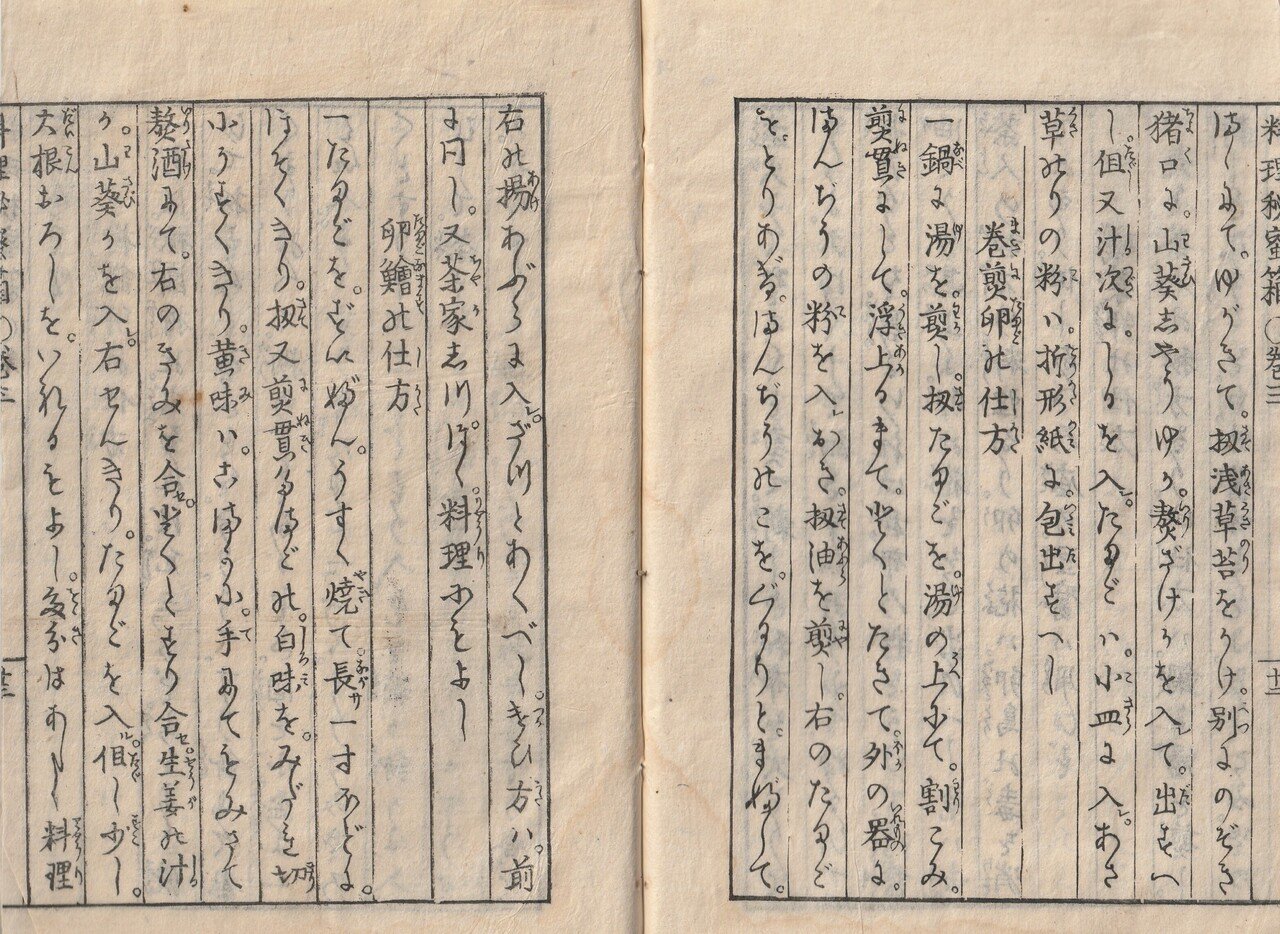 料理秘密箱〇巻三 十二
ほしにて。ゆがきて。扨浅草苔をかけ。別にのぞき
猪口に。山葵志やうゆか。熬ざけかを入て。出すへ
し。但又汁次に。しるを入。たまごハ。小皿に入。あさ
草のりの粉ハ。折形紙に。包出すへし
巻煎卵の仕方
一鍋に湯を。煎し。扨たまごを。湯の上にて。割こみ。
煎貫にして。浮上るまで。とくとたきて。外の器に。
まんぢうの粉を入おき。扨油を煎し。右のたまご
を。とりあげ。まんぢうのこを。くるりとまぶして。
右の揚あぶらに入。ざつとあくべし。きひ方ハ。前
に同し。又茶家しつぽく料理にもよし
卵鱠の仕方
一たまごを。ずいぶん。うすく焼て長サ一寸ほどに。
ほそくきり。扨又煎貫たまごの。白味を。みぢかく切
小うすくきり。黄味ハ。こまかに。手にてもみさて
熬酒にて。右のきみを合。とくとすり合。生姜の汁
か。山葵かを入。右せんきり。たまごを入。但し少し。
大根おろしを。いれるもよし。多分はあしく料理